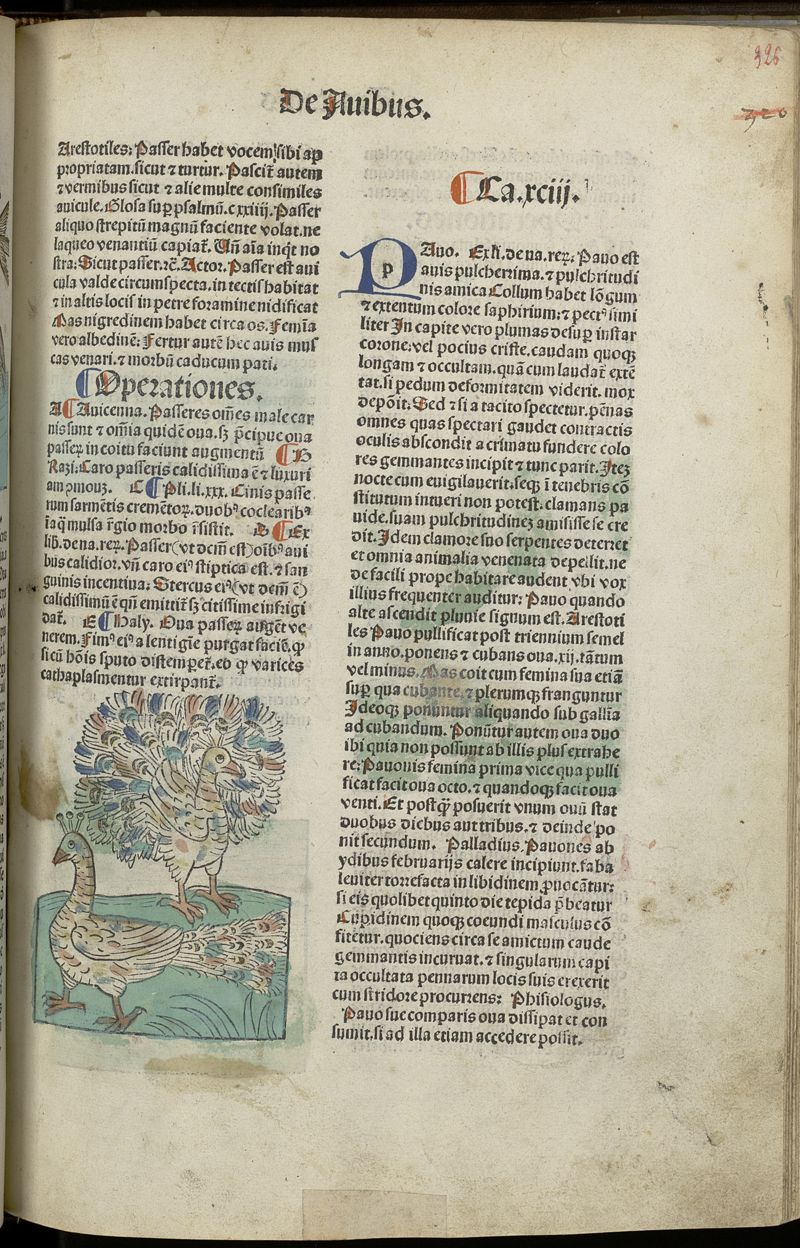 326
De Auibus.
Arestotiles: Passer habet vocem sibi ap
propriatam. sicut ⁊ turtur. Pascit̃ autem
⁊ vermibus sicut ⁊ alie multe consimiles
auicule. Glosa sup psalmũ. cxxiiij. Passer
aliquo strepitũ magnũ faciente volat. ne
laqueo venantiũ capiat̃. Uñ aĩa inqͥt no
stra: Sicut passer. ⁊c̃. Actor. Passer est aui
cula valde circumspecta. in tectis habitat
⁊ in altis locis in petre foramine nidificat
Mas nigredinem habet circa os. Femĩa
vero albedinẽ: Fertur autẽ hec auis mus
cas venari. ⁊ morbũ caducum pati.
Operationes.
A Auicenna. Passeres om̃es male car
nis sunt ⁊ om̃ia quidẽ oua. sꝫ p̃cipue oua
passeꝝ in coitu faciunt augmentũ B
Razi. Caro passeris calidissima ẽ ⁊ luxuri
am ꝓmouꝫ. C Pli. li. xxx. Cinis passe
rum sarmẽtis crematoꝝ. duobꝰ coclearibꝰ
ĩ aq̃ mulsa r̃gio morbo ĩsistit. D Ex
lib. de na. reꝝ. Passer (vt dcm̃ est) oĩbꝰ aui
bus calidior. vñ caro eiꝰ stiptica est. ⁊ san
guinis incentiua: Stercus eiꝰ (vt dcm̃ ẽ)
calidissimũ ẽ qñ emittit̃ sꝫ citissime infrigi
dat̃. E Haly. Oua passeꝝ augẽt ve
nerem. Fimꝰ eiꝰ a lentigĩe purgat faciẽ. qꝫ
si cũ hoĩs sputo distemperet̃. eo qꝫ varices
cathaplasmentur extirpant̃.
Ca. xciij.
p
PAuo. Ex li. de na. reꝝ. Pauo est
auis pulcherrima. ⁊ pulchritudi
nis amica Collum habet lõgum
⁊ extentum colore saphirium: ⁊ pectꝰ simi
liter In capite vero plumas desup instar
corone: vel pocius criste. caudam quoqꝫ
longam ⁊ occultam. quã cum laudat̃ extẽ
tat. si pedum deformitatem viderit. mox
depõit. Sed ⁊ si a tacito spectetur. pẽnas
omnes quas spectari gaudet contractis
oculis abscondit a crimatu fundere colo
res gemmantes incipit ⁊ tunc parit. Iteꝫ
nocte cum euigilauerit. seqꝫ ĩ tenebris cõ
stitutum intueri non potest. clamans pa
uide. suam pulchritudineꝫ amisisse se cre
dit. Idem clamore suo serpentes deterret
et omnia animalia venenata depellit. ne
de facili prope habitare audent vbi vox
illius frequenter auditur: Pauo quando
alte ascendit pluuie signum est. Arestoti
les Pauo pullificat post triennium semel
in anno. ponens ⁊ cubans oua. xij. tãtum
vel minus. Mas coit cum femina sua etiã
sup qua cubante. ⁊ plerumqꝫ franguntur
Ideoqꝫ ponuntur aliquando sub gallĩa
ad cubandum. Ponũtur autem oua duo
ibi quia non possunt ab illis plus extrahe
re: Pauonis femina prima vice qua pulli
ficat facit oua octo. ⁊ quandoqꝫ facit oua
venti. Et postqꝫ̃ posuerit vnum ouũ stat
duobus diebus aut tribus. ⁊ deinde po
nit secundum. Palladius. Pauones ab
ydibus februarijs calere incipiunt. faba
leuiter torrefacta in libidinem ꝓuocãtur:
si eis quolibet quinto die tepida p̃beatur
Cupidinem quoqꝫ coeundi masculus cõ
fitetur. quociens circa se amictum caude
gemmantis incuruat. ⁊ singularum capi
ta occultata pennarum locis suis erexerit
cum stridore procurrens: Phisiologus.
Pauo sue comparis oua dissipat et con
sumit. si ad illa etiam accedere possit.